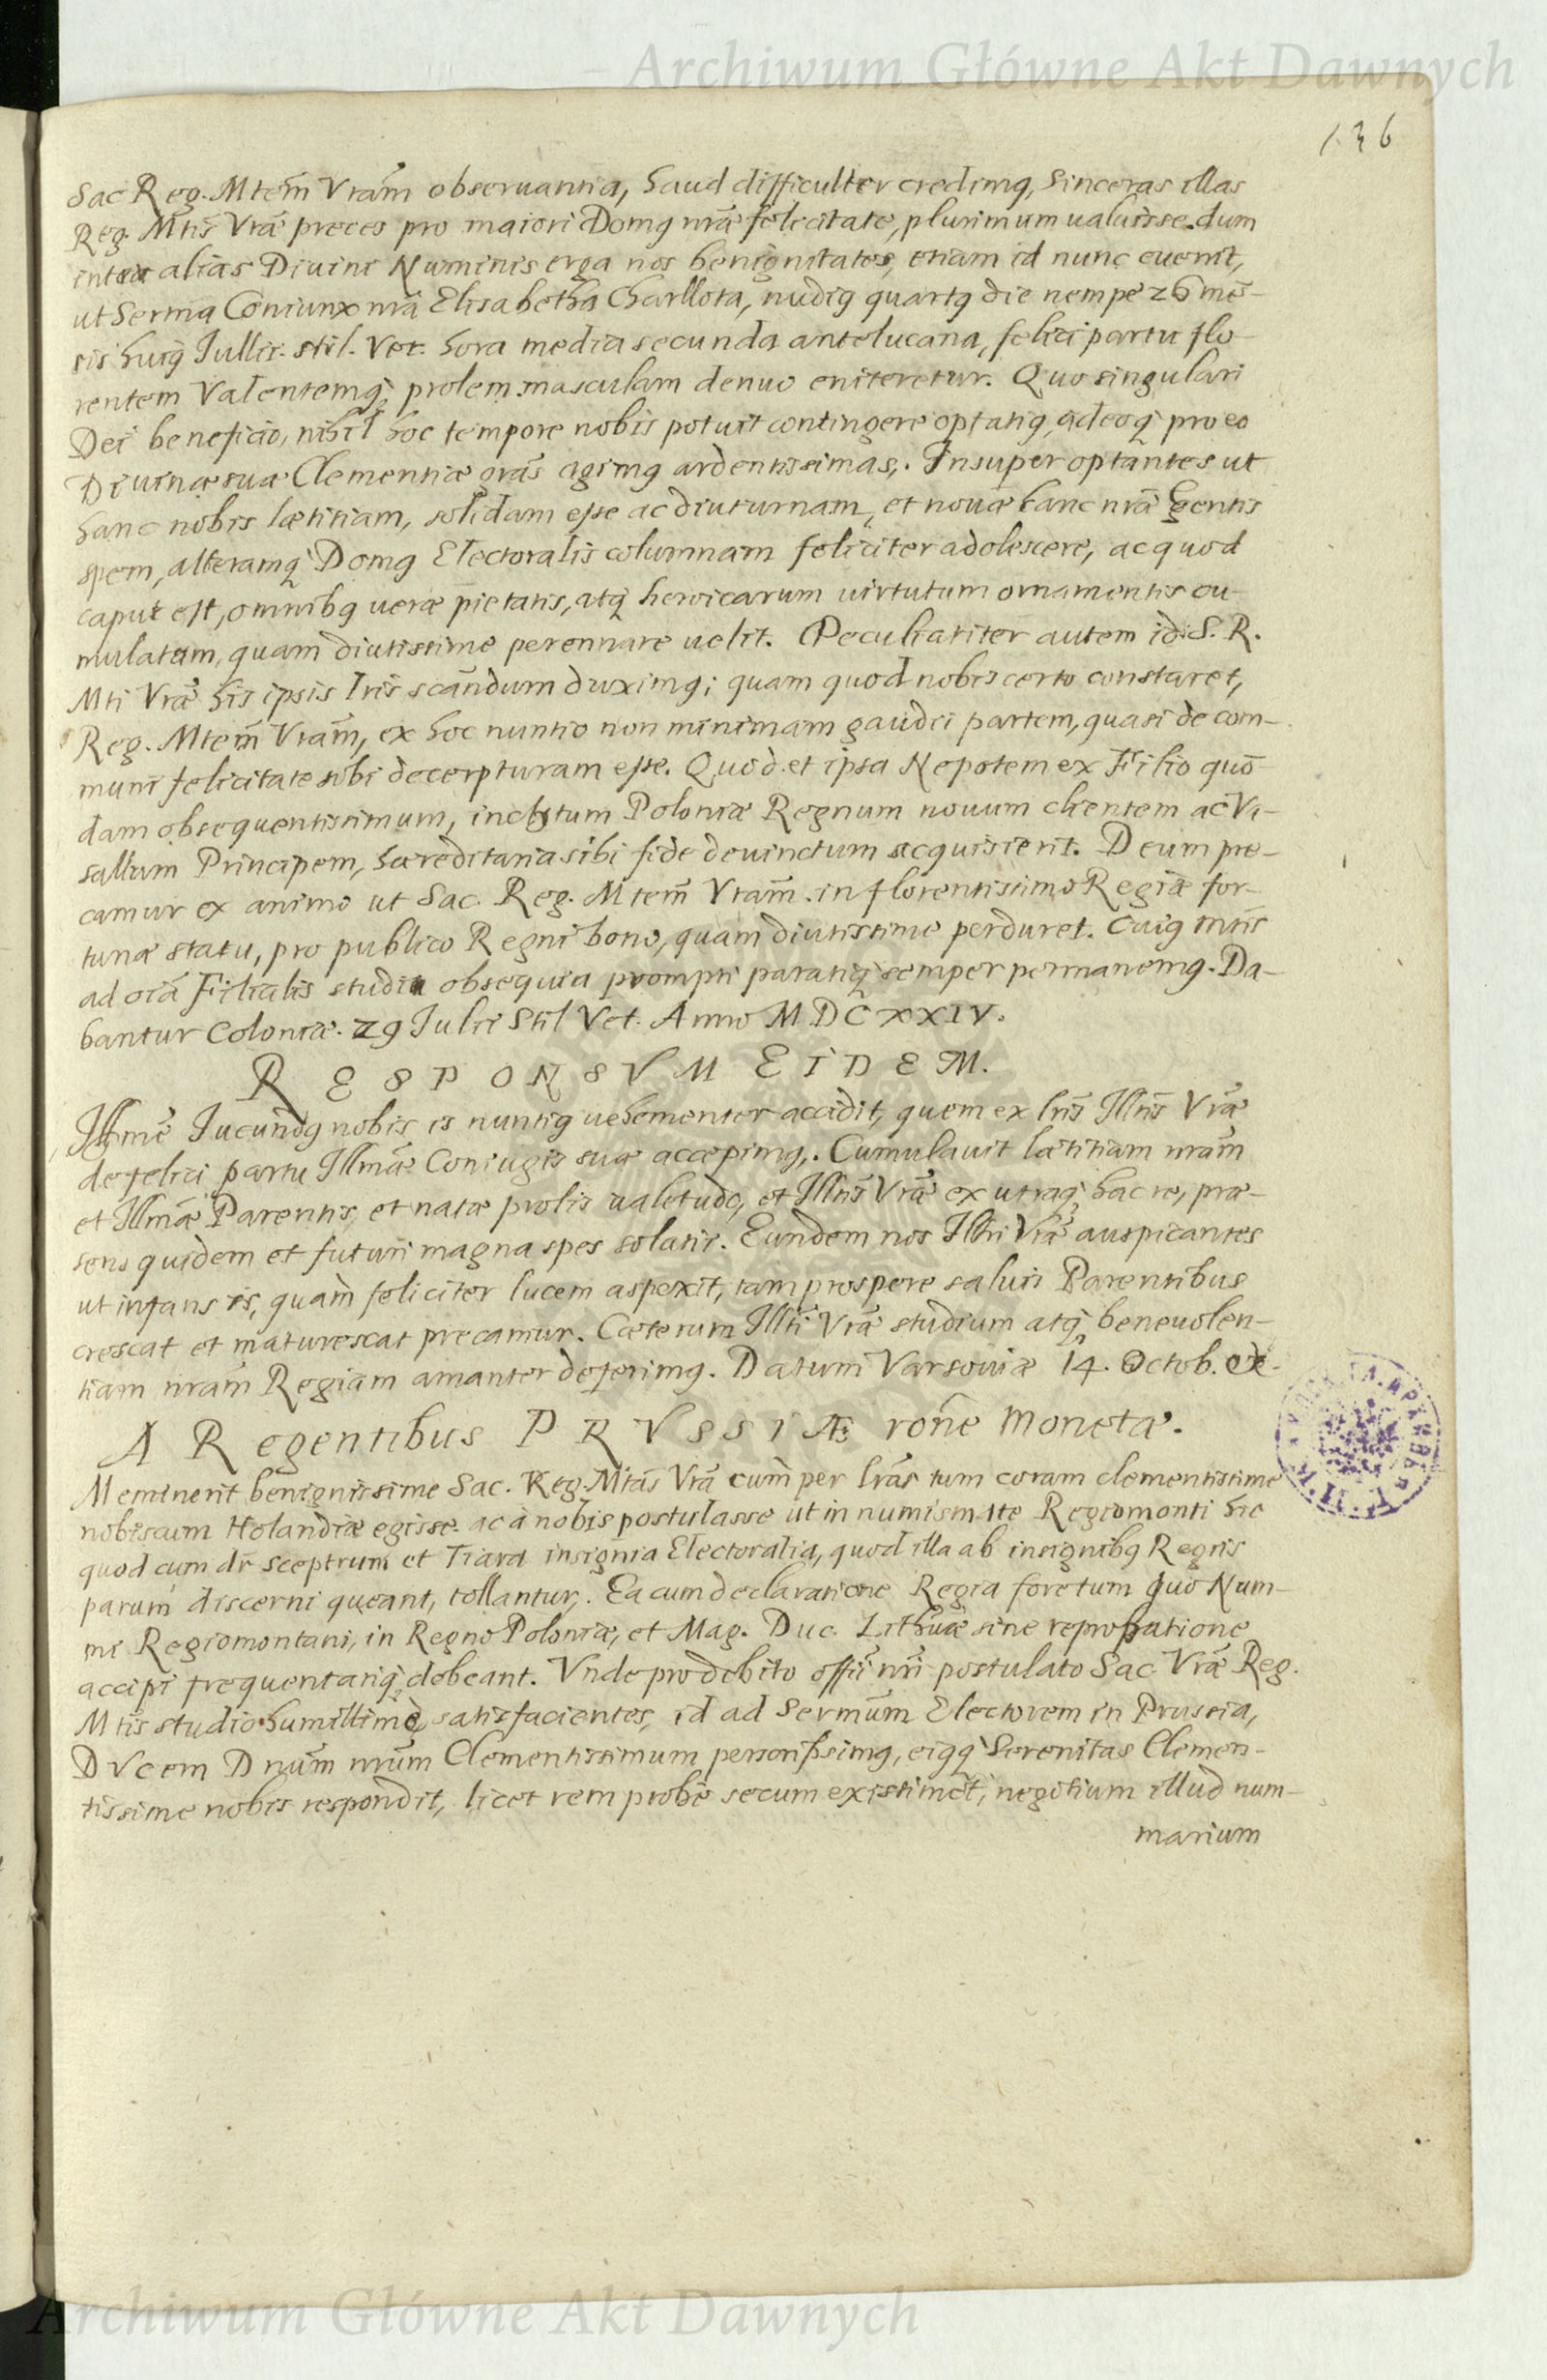 Archiwum Główne Akt Dawnych
136
Sac Reg. Mtem̃ Vrãm obseruantia, haud difficulter credimq, sinceras illas
Reg. Mtis̃ Vrã preces pro maiori Domq nrã felicitate, plurimum ualuisse. dum
inter alias Diuini Numinis erga nos benignitates, etiam id nunc euenit,
ut Serma Coniunx nrã Elisabetha Charllota, nudiq quartq die nempe 26 mẽ-
sis huiq Jullii. stil. Vet. hora media secunda antelucana, felici partu flo-
rentem Valentemq, prolem masculam denuo eniteretur. Quo singulari
Dei beneficio, nihil hoc tempore nobis potuit contingere optatiq, adeoq pro eo
Diuinæ suæ Clementiæ grãs agimq ardentissimas,. Insuper optantes ut
hanc nobis lætitiam, solidam esse ac diuturnam, et nouã hanc nrã Gentis
spem, alteramq Domq Electoralis columnam feliciter adolescere, ac quod
caput est, omnibq ueræ pietatis, atq heroicarum uirtutum ornamentis cu-
mulatam, quam diutissime perennare uelit. Peculiariter autem id S. R.
Mti Vrã his ipsis lris scãndum duximq; quam quod nobis certo constaret,
Reg. Mtem̃ Vrãm, ex hoc nuntio non minimam gaudii partem, quasi de com-
muni felicitate sibi decerpturam esse. Quod et ipsa Nepotem ex Filio quõ-
dam obsequentissimum, inclytum Poloniæ Regnum nouum clientem ac Va-
sallum Principem, hæreditaria sibi fide deuinctum acquisierit. Deum pre-
camur ex animo ut Sac. Reg. Mtem̃ Vrãm. in florentissimo Regiæ for-
tunæ statu, pro publico Regni bono, quam diutissime perduret. Cuiq Mtis̃
ad oiã Filialis studia obsequia prompti paratiq semper permanemq. Da-
bantur Coloniæ. 29 Julii Stil Vet. Anno MDCXXIV.
RESPONSVM EIDEM.
Illmẽ Jucundq nobis is nuntiq uehementer accidit, quem ex lris̃ Illtis̃ Vrã
de felici partu Illmã Coniugis suæ accepimq,. Cumulauit lætitiam nrãm
et Illmã Parentis, et natæ prolis ualetudo, et Illtis̃ Vrã ex utraq hac re, præ-
sens quidem et futuri magna spes solatii. Eundem nos Illti Vrã auspicantes
ut infans is, quam feliciter lucem aspexit, tam prospere saluis Parentibus
crescat et maturescat precamur. Cæterum Illti Vrã studium atq beneuolen-
tiam nrãm Regiam amanter deferimq. Datum Varsouiæ 14. Octob.
A Regentibus PRVSSIÆ rõne Monetæ.
Meminerit benignissime Sac. Reg. Mtãs Vrã cum per lrãs tum coram clementissime
nobiscum Holandiæ egisse. ac à nobis postulasse ut in numismate Regiomonti hic
quod cum dr̃ sceptrum et Tiara insignia Electoralia, quod illa ab insignibq Regiis
parum discerni queant, tollantur,. Ea cum declaratione Regia foretum quo Num-
mi Regiomontani, in Regno Poloniæ, et Mag. Duc. Lithuæ sine reprobatione
accipi frequentariq debeant. Vnde pro debito offii nri postulato Sac. Vrã Reg.
Mtis studio humillimè satisfacientes, id ad Sermũm Electorem in Prussia,
DVcem Dnũm nrũm Clementissimum perscripsimq, eiqq Serenitas Clemen-
tissime nobis respondit, licet rem probè secum existimet, negotium illud num-
marium
Archiwum Główne Akt Dawnych